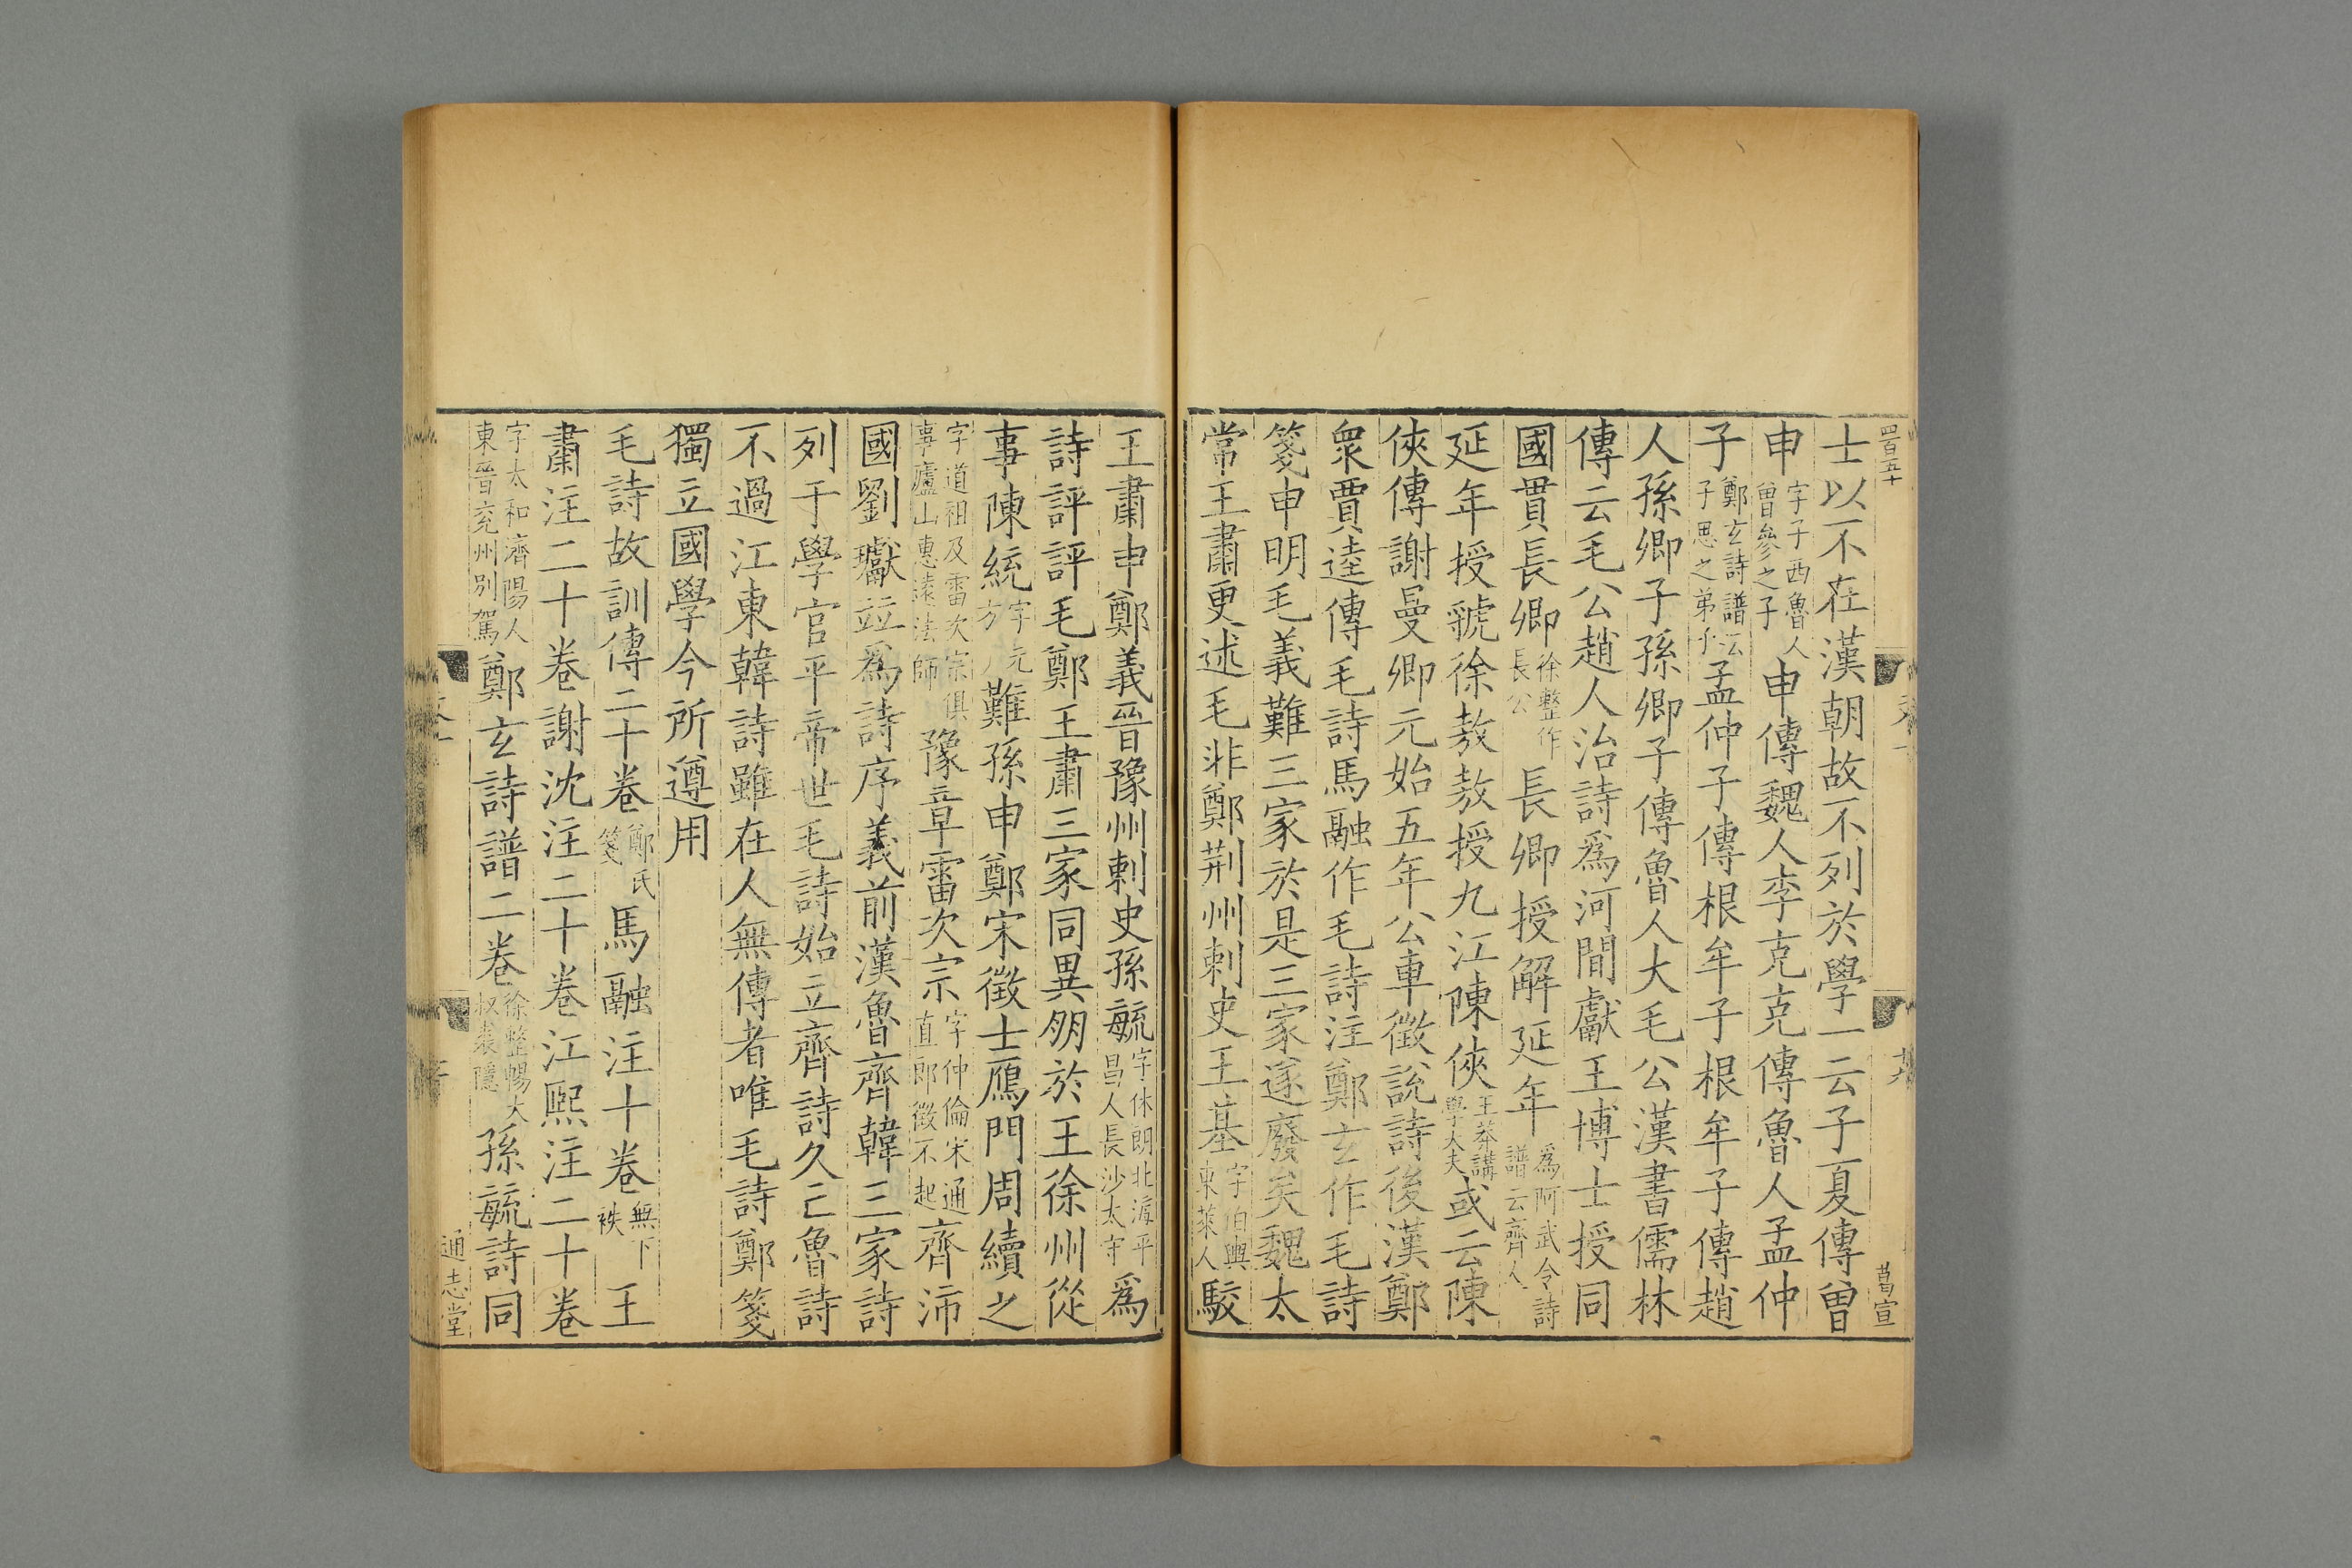 四百五十
士以不在漢朝故不列於學一云子夏傳曾
申字子西魯人曾參之子申傳魏人李克克傳魯人孟仲
子鄭玄詩譜云子思之弟子孟仲子傳根牟子根牟子傳趙
人孫卿子孫卿子傳魯人大毛公漢書儒林
傳云毛公趙人治詩爲河間獻王博士授同
國貫長卿徐整作長公長卿授解延年爲阿武令詩譜云齊人
延年授虢徐敖敖授九江陳俠王莽講學大夫或云陳
俠傳謝曼卿元始五年公車徵說詩後漢鄭
衆賈逵傳毛詩馬融作毛詩注鄭玄作毛詩
箋申明毛義難三家於是三家遂廢矣魏太
常王肅更述毛非鄭荆州刺史王基字伯輿東萊人駮
王肅申鄭義晉豫州刺史孫毓字休朗北海平昌人長沙太守爲
詩評評毛鄭王肅三家同異朋於王徐州從
事陳統字元方難孫申鄭宋徵士鴈門周續之
字道祖及雷次宗俱事廬山惠遠法師豫章雷次宗字仲倫宋通直郎徵不起齊沛
國劉瓛竝爲詩序義前漢魯齊韓三家詩
列于學官平帝世毛詩始立齊詩久亡魯詩
不過江東韓詩雖在人無傳者唯毛詩鄭箋
獨立國學今所遵用
毛詩故訓傳二十卷鄭氏箋馬融注十卷無下袟王
肅注二十卷謝沈注二十卷江熙注二十卷
字太和濟陽人東晉兖州別駕鄭玄詩譜二卷徐整暢大叔裘隱孫毓詩同
通志堂